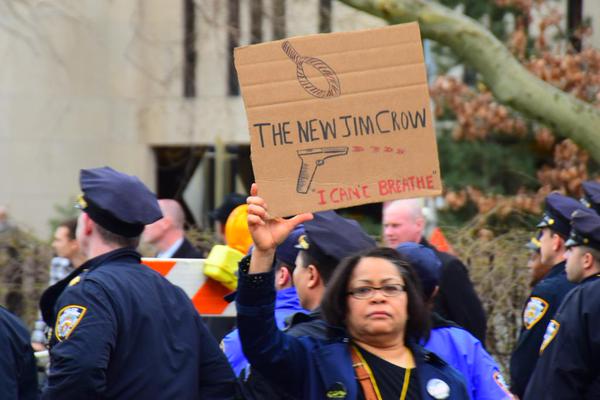 THE NEW JIM CROW
"I CAN'T BREATHE"